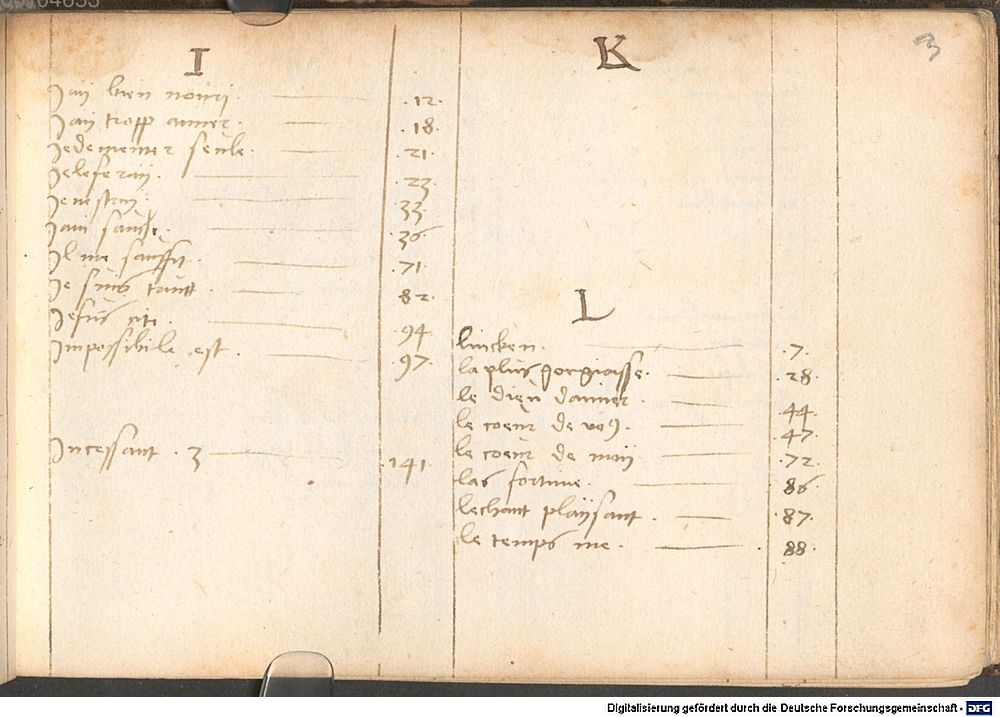 3
I
Jay bien nouri. 12.
Jay tropp aymer. 18.
Jedementer seule. 21.
Jeleferaij. 23.
Je nestaij. 33.
36.
Il me souffit. 71.
Je suis tautt. 82.
Jesus 94.
Impossibile est. 97.
Incessant . 3 141.
K
L
lincken. 7.
la plus gorgiasse. 28.
le dieu daimer. 44.
le coeur de vo9. 47.
le coeur de maij 72.
las fortune. 86.
lechant plaijsant. 87.
le temps me. 88.
Digitalisierung gefördert durch die Deutsche Forschungsgemeinschaft - DFG